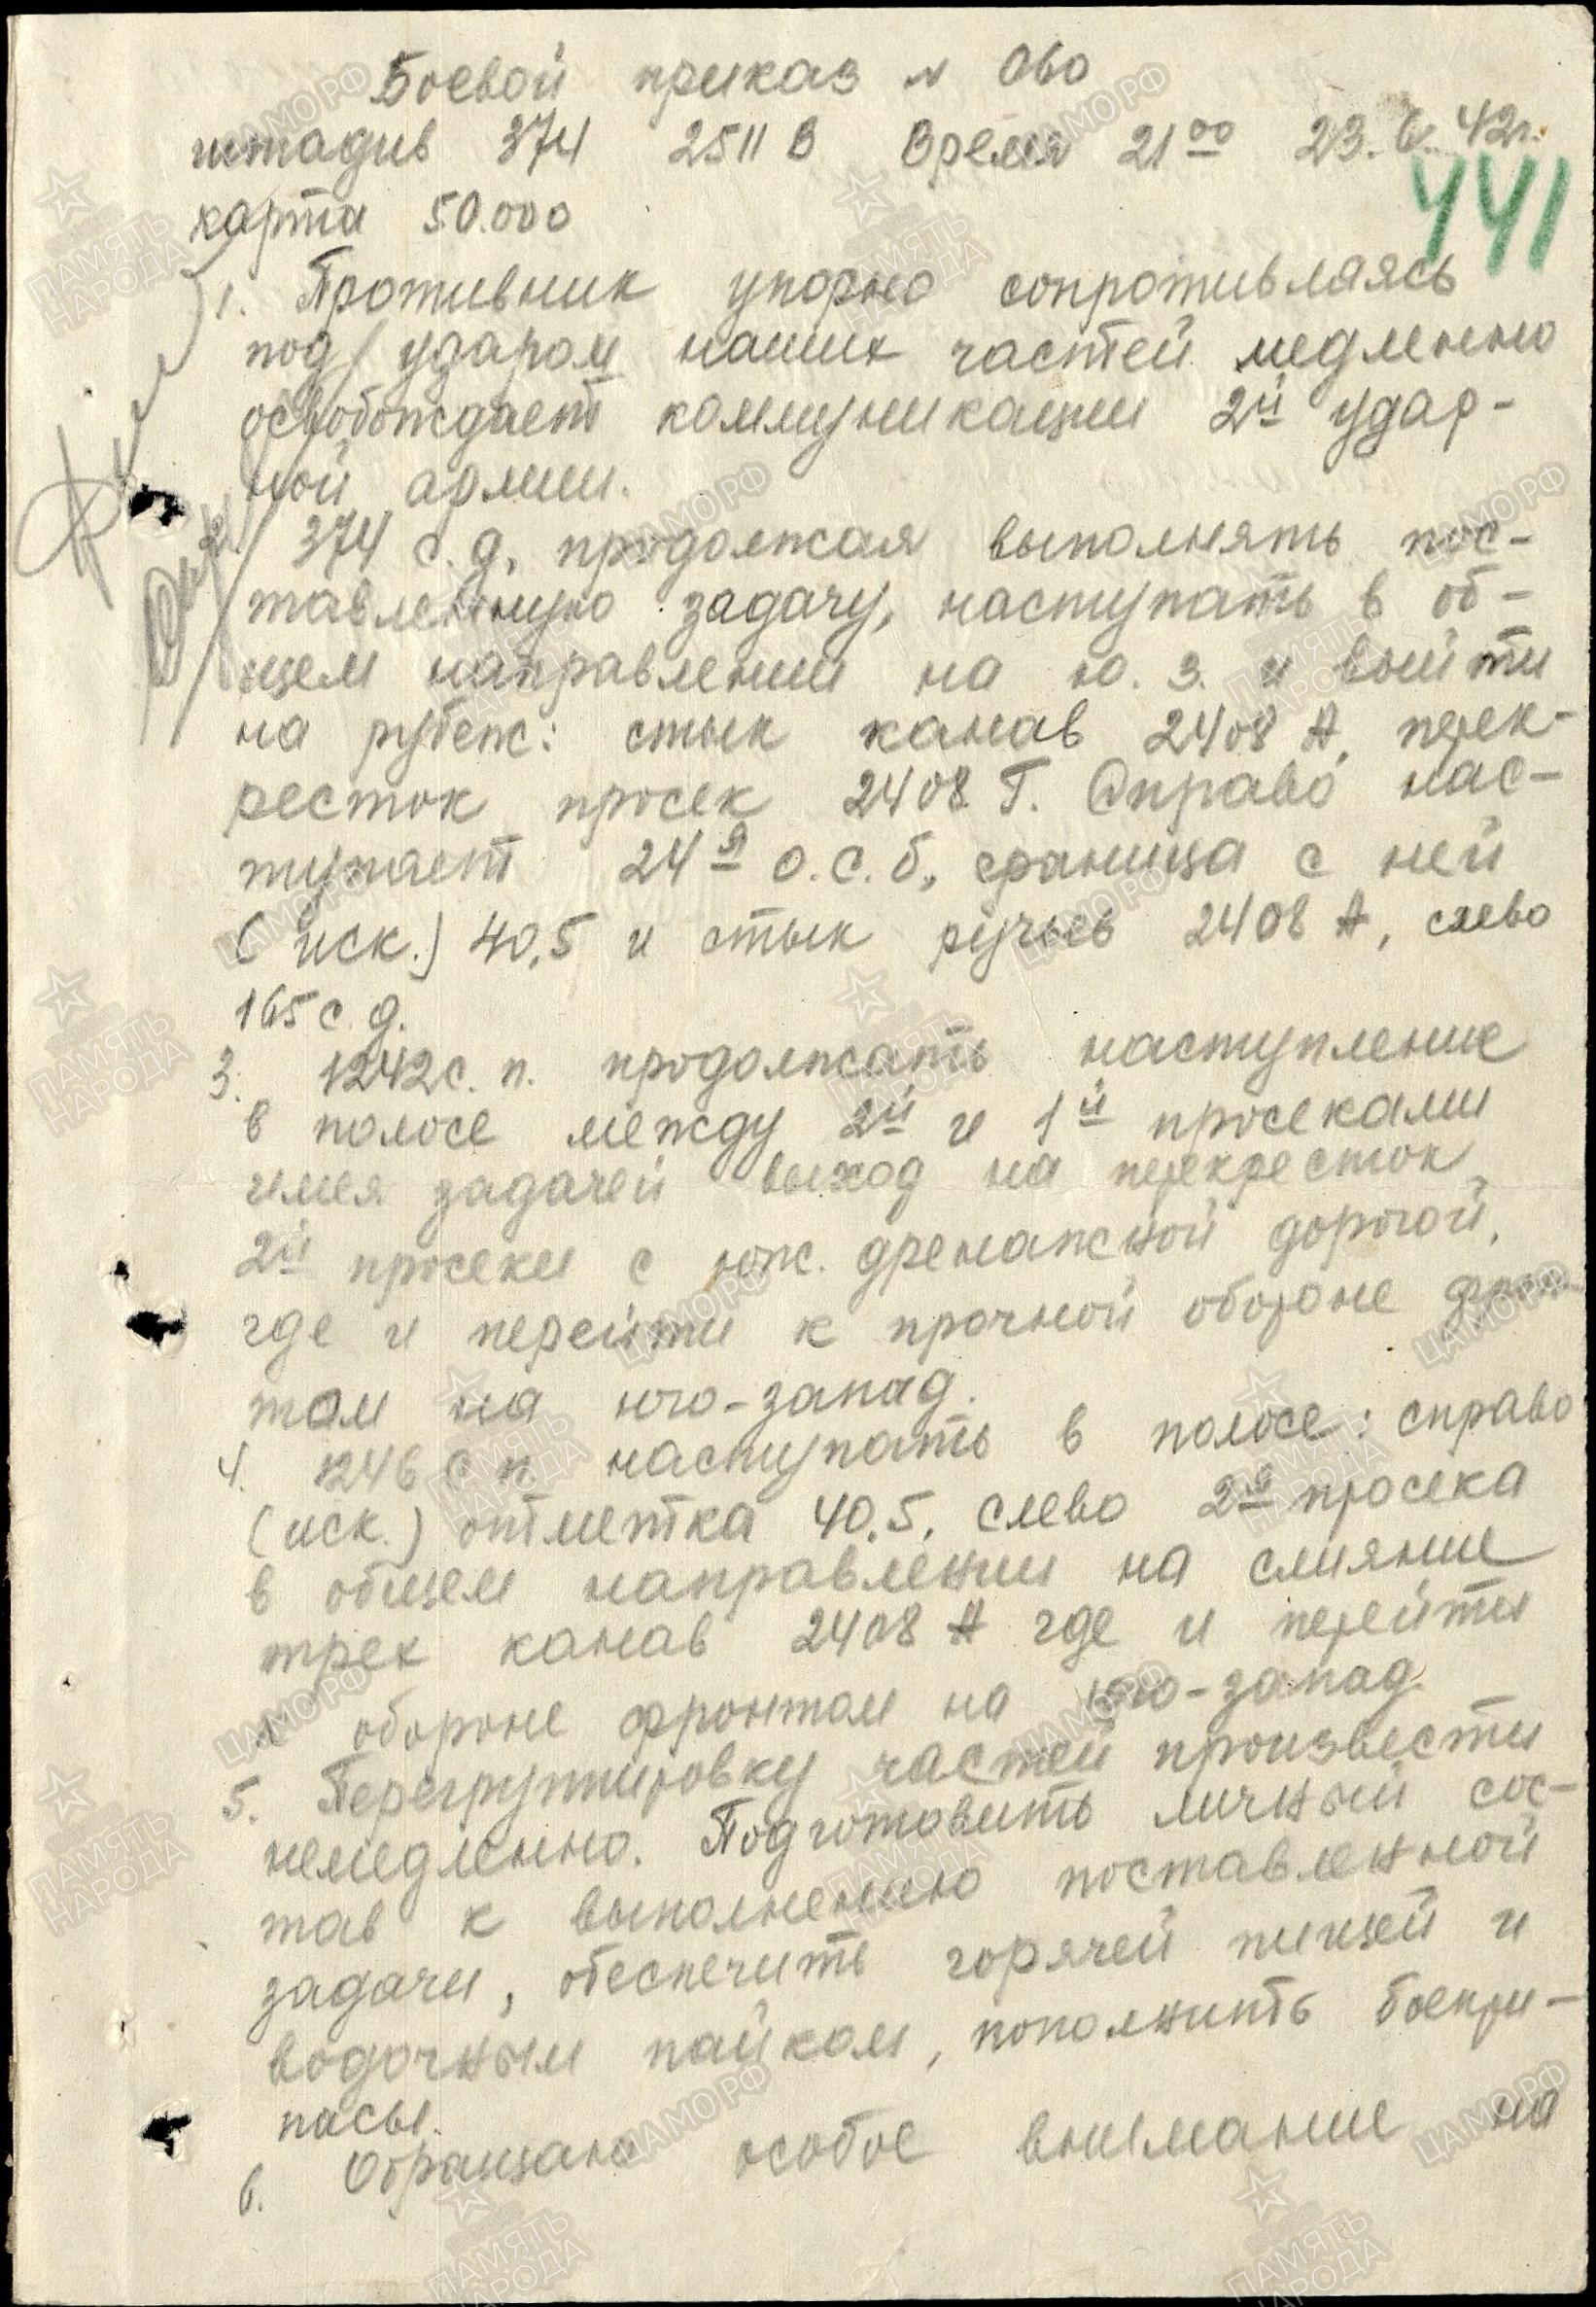 Боевой приказ № 060
штадив 374 2511 В Время 21 00 23.6.42г.
441
карта 50.000
1. Противник упорно сопротивляясь
под ударом наших частей медленно
освобождает коммуникации 2й удар-
ной армии.
2. 374 с.д. продолжая выполнять пос-
тавленную задачу, наступать в об-
щем направлении на ю.з. и выйти
на рубеж: стык канав 2408 А, перек-
ресток просек 2408 Г. Справо нас-
тупает 24я о.с.б, граница с ней
(иск.) 40,5 и стык ручьев 2408 А, слево
165 с.д.
3. 1242 с.п. продолжать наступление
в полосе между 2й и 1й просеками
имея задачей выход на перекресток
2й просеки с юж. дренажной дорогой,
где и перейти к прочной обороне фрон-
том на юго-запад.
4. 1246 с п. наступать в полосе: справо
(иск.) отметка 40,5, слево 2я просека
в общем направлении на слияние
трех канав 2408 А где и перейти
к обороне фронтом на юго-запад.
5. Перегруппировку частей произвести
немедленно. Подготовить личный сос-
тав к выполнению поставленной
задачи, обеспечить горячей пищей и
водочным пайком, пополнить боепри-
пасы.
6. Обращаю особое внимание на
ПАМЯТЬ НАРОДА
ЦАМО.РФ